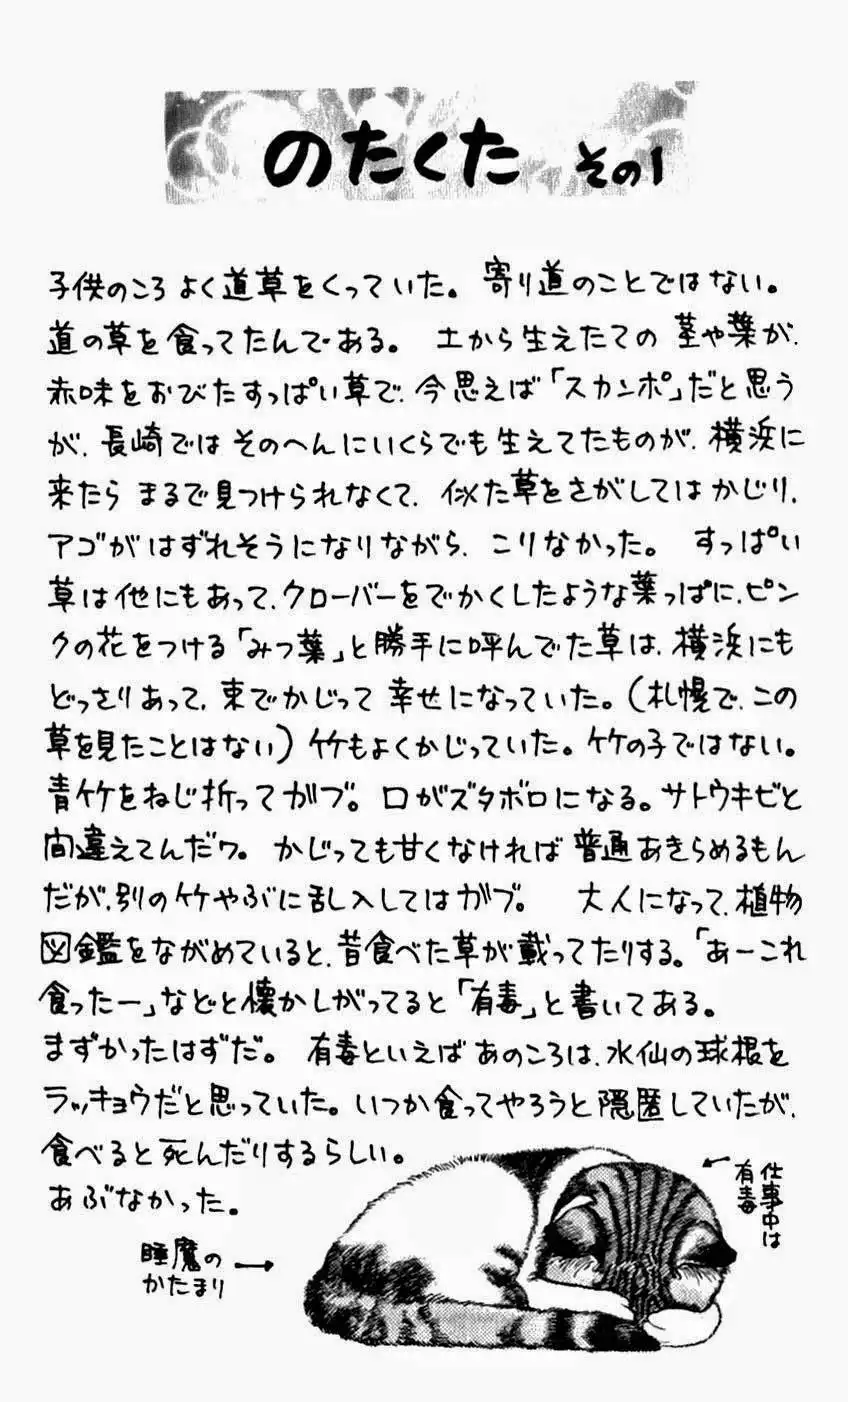 のたくた その1
子供のころ よく道草をくっていた。 寄り道のことではない。
道の草を食ってたんである。 土から生えたての 茎や葉が、
赤味をおびたすっぱい草で、今思えば「スカンポ」だと思う
が、長崎では そのへんにいくらでも生えてたものが、横浜に
来たら まるで見つけられなくて、似た草をさがしては かじり、
アゴが はずれそうになりながら、こりなかった。 すっぱい
草は他にもあって、クローバーをでかくしたような葉っぱに、ピン
クの花をつける「みつ葉」と勝手に呼んでた草は、横浜にも
どっさりあって、束でかじって 幸せになっていた。(札幌で、この
草を見たことはない) 竹もよくかじっていた。竹の子ではない。
青竹をねじ折ってガブ。口がズタボロになる。サトウキビと
間違えてんだワ。 かじっても甘くなければ 普通あきらめるもん
だが、別の竹やぶに乱入してはガブ。 大人になって、植物
図鑑をながめていると、昔食べた草が載ってたりする。「あーこれ
食ったー」などと懐かしがってると「有毒」と書いてある。
まずかったはずだ。 有毒といえば あのころは、水仙の球根を
ラッキョウだと思っていた。いつか食ってやろうと隠匿していたが、
食べると死んだりするらしい。
あぶなかった。
仕事中は
有毒
睡魔の
かたまり